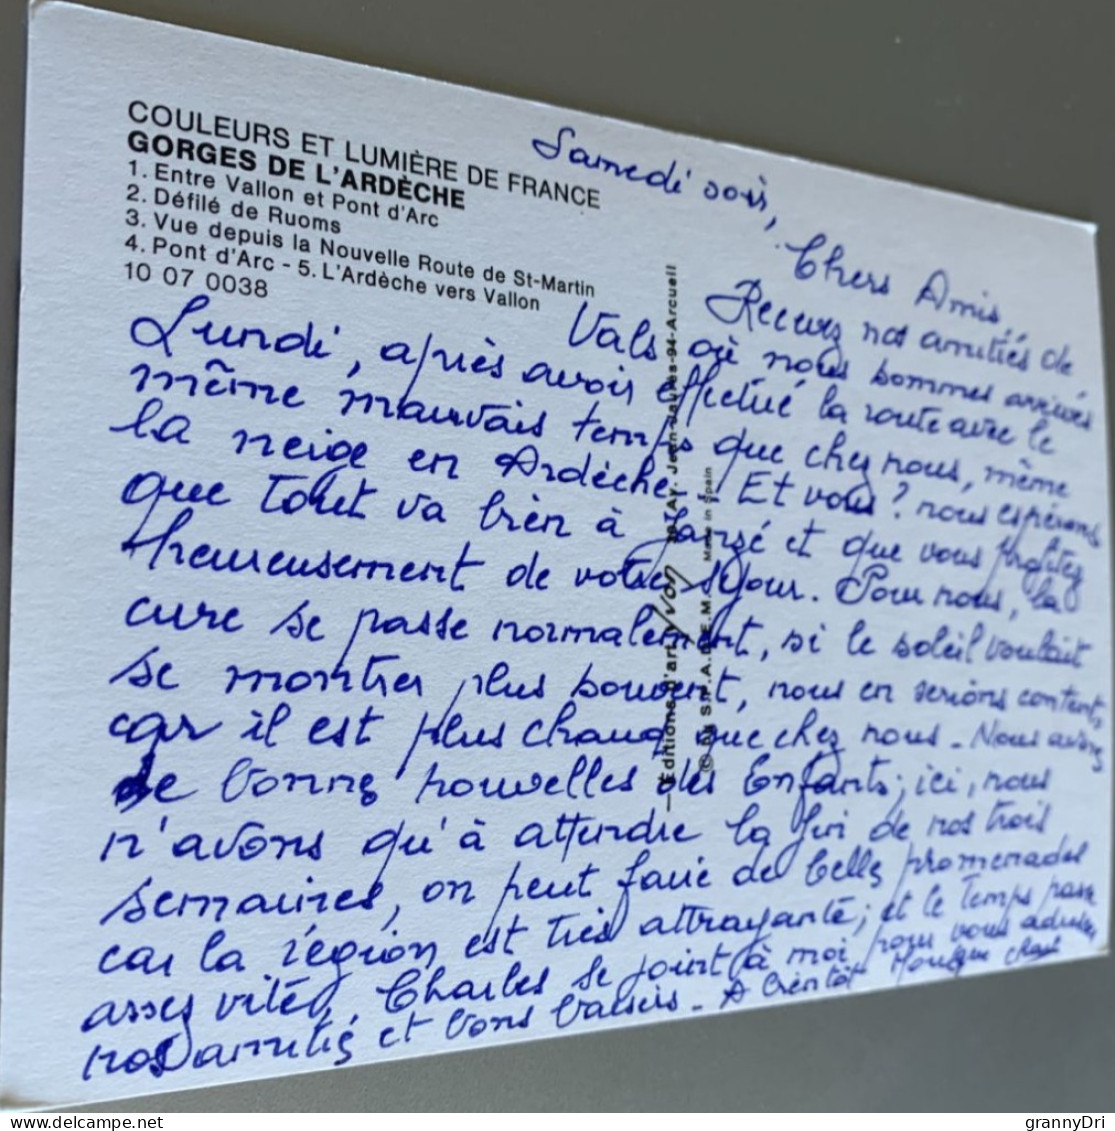 COULEURS ET LUMIÈRE DE FRANCE
GORGES DE L'ARDÈCHE
1. Entre Vallon et Pont d'Arc
2. Défilé de Ruoms
3. Vue depuis la Nouvelle Route de St-Martin
4. Pont d'Arc - 5. L'Ardèche vers Vallon
10 07 0038
Samedi soir,
Chers Amis,
Recevez nos amitiés de
Vals où nous sommes arrivés
Lundi, après avoir effectué la route avec le
même mauvais temps que chez nous, même
la neige en Ardèche. Et vous? nous espérons
que tout va bien à et que vous profitez
heureusement de votre séjour. Pour nous, la
cure se passe normalement, si le soleil voulait
se montrer plus souvent, nous en serions content,
car il est plus chaud que chez nous. Nous avons
de bonnes nouvelles des Enfants; ici, nous
n'avons qu'à attendre la fin de nos trois
semaines, on peut faire de belles promenades
car la région est très attrayante; et le temps passe
assez vite, Charles se joint à moi pour vous adresser
nos amitiés et bons baisers. A bientôt
Editions d'art Yvon Av. Jean-Jaurès-94-Arcueil
Made in Spain
granny​Dri
delcampe.net